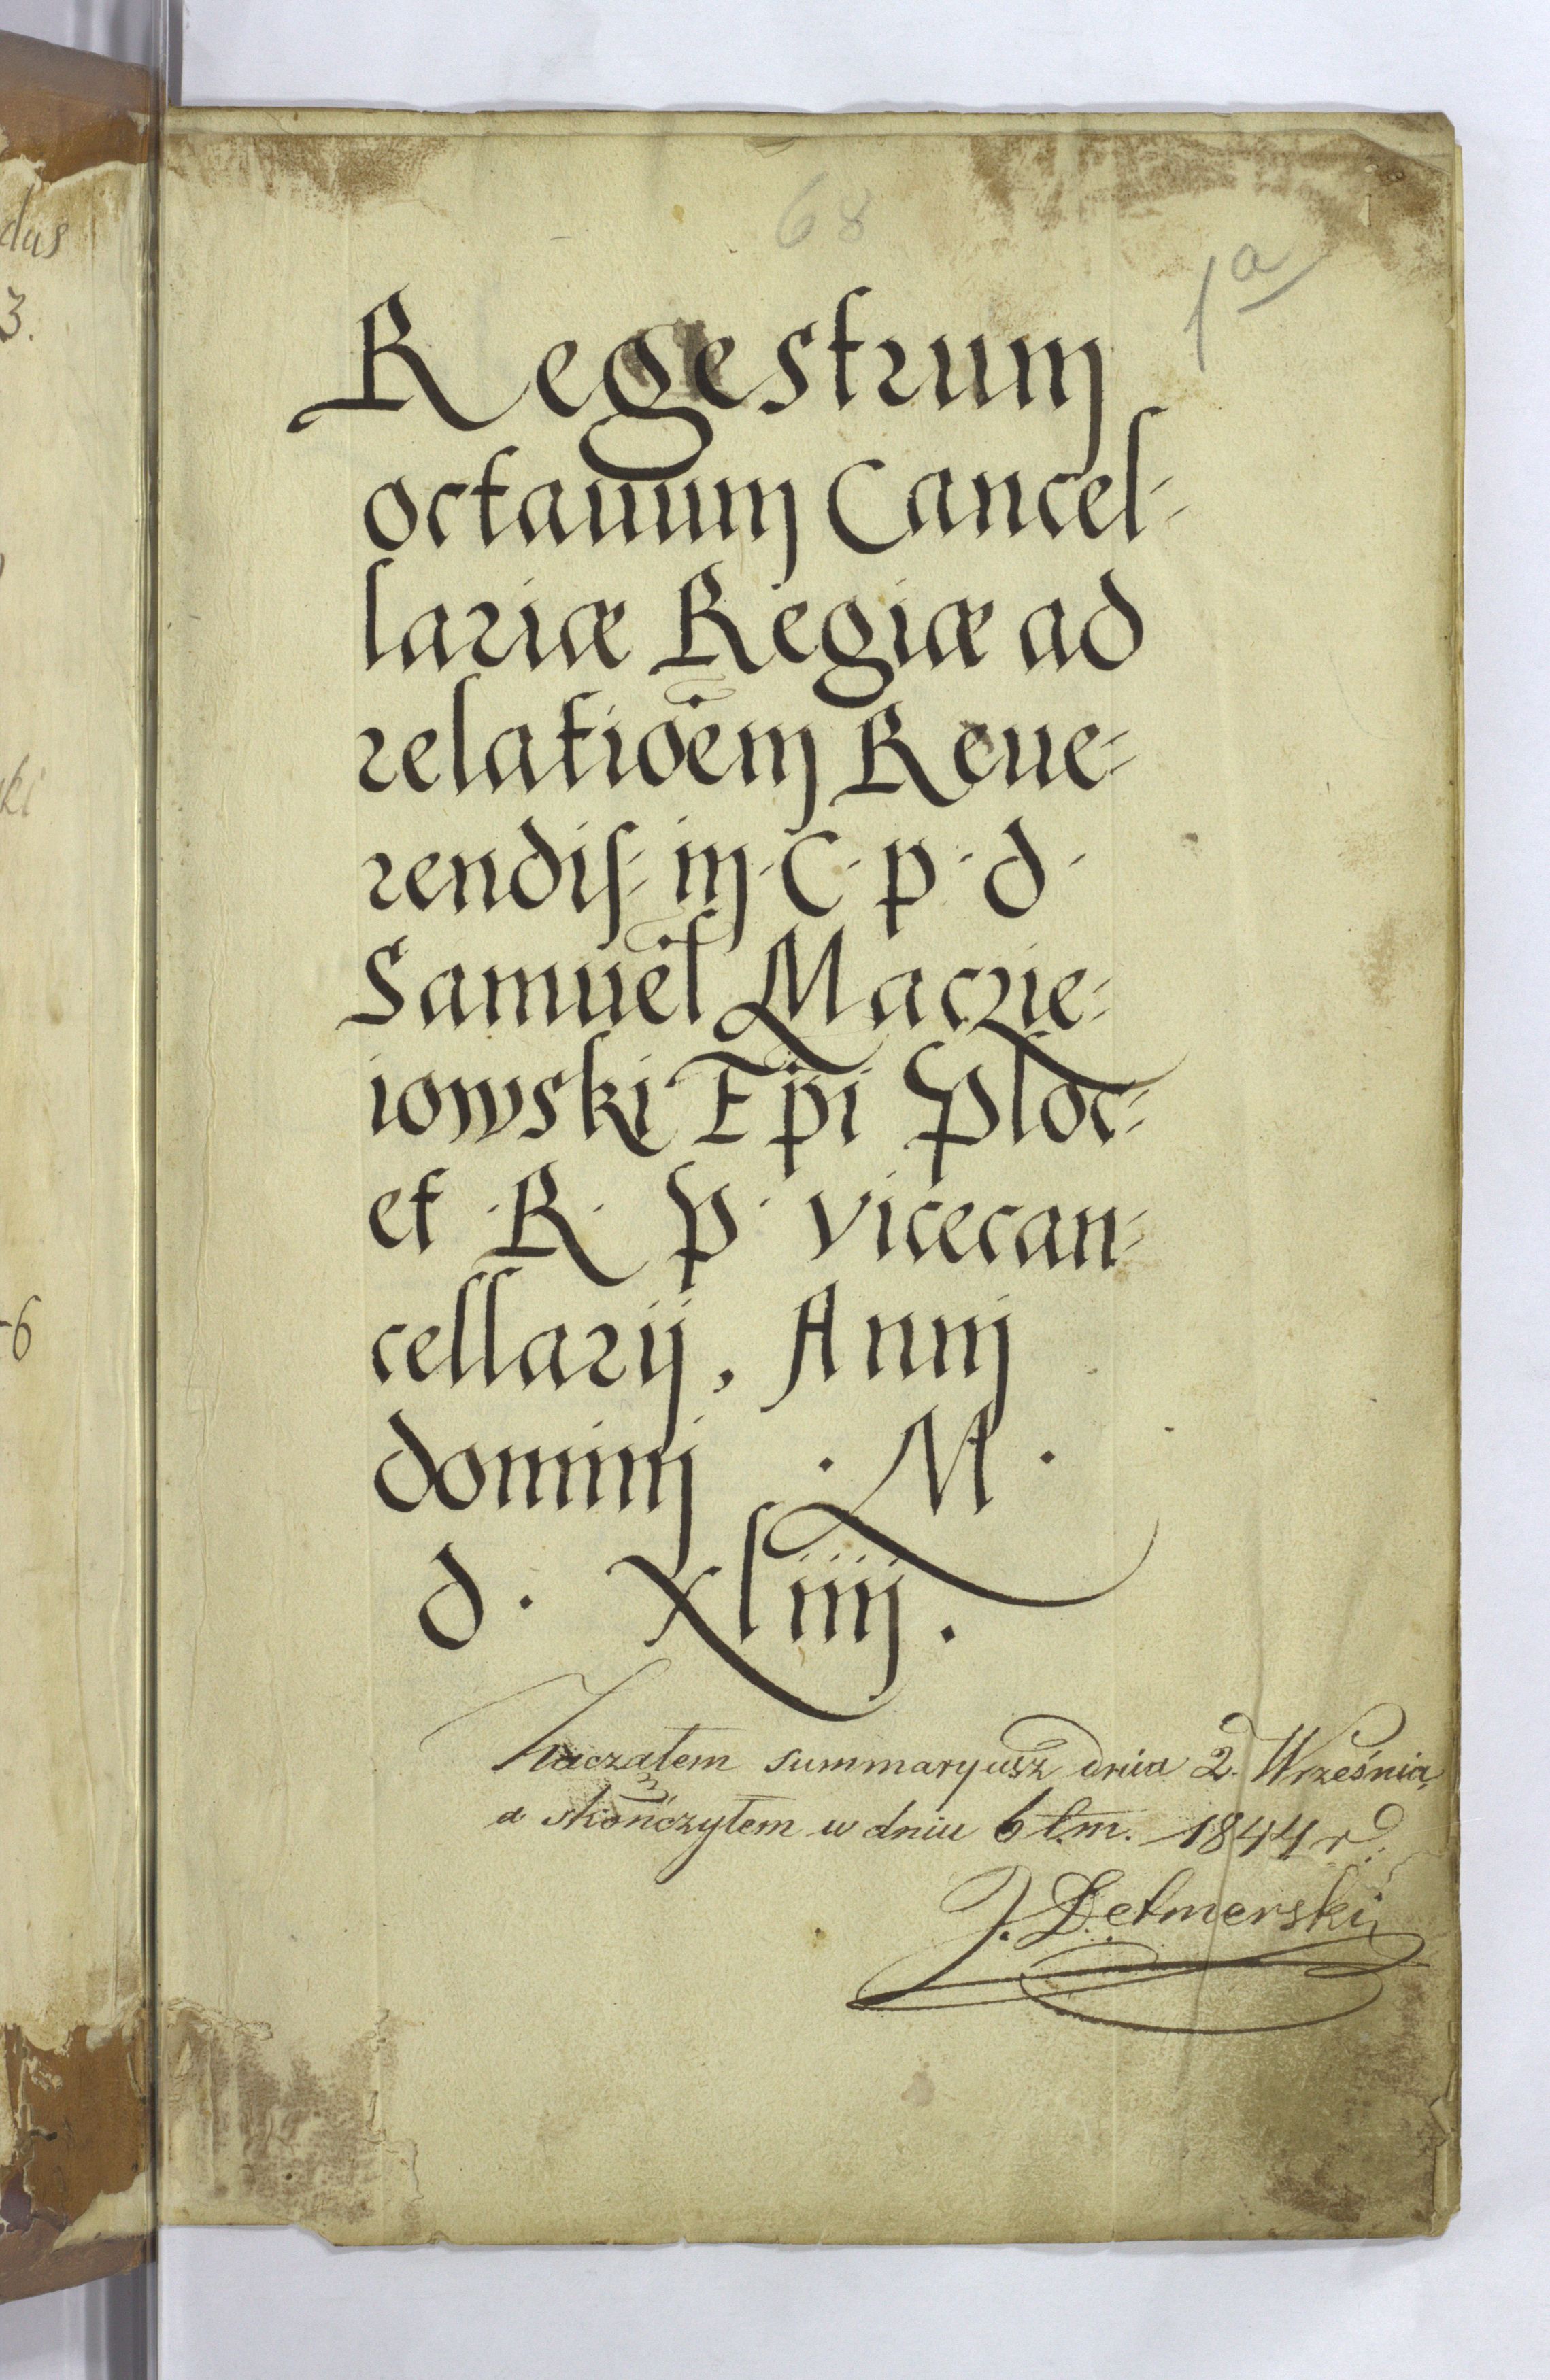 dus
3.
ki
6
68
1a
Regestrum
octauum Cancel-
lariæ Regiæ ad
relatiōem Reue-
rendis- in C. p. d.
Samuel Maczie-
iowski Epi Ploc-
et R. P. vicecan-
cellarij, Annj
dominj . M .
d . xliiij .
Zaczałem summaryusz dnia 2. Września
a skończyłem w dniu 6 t.m. 1844 r.
J. Detmerski